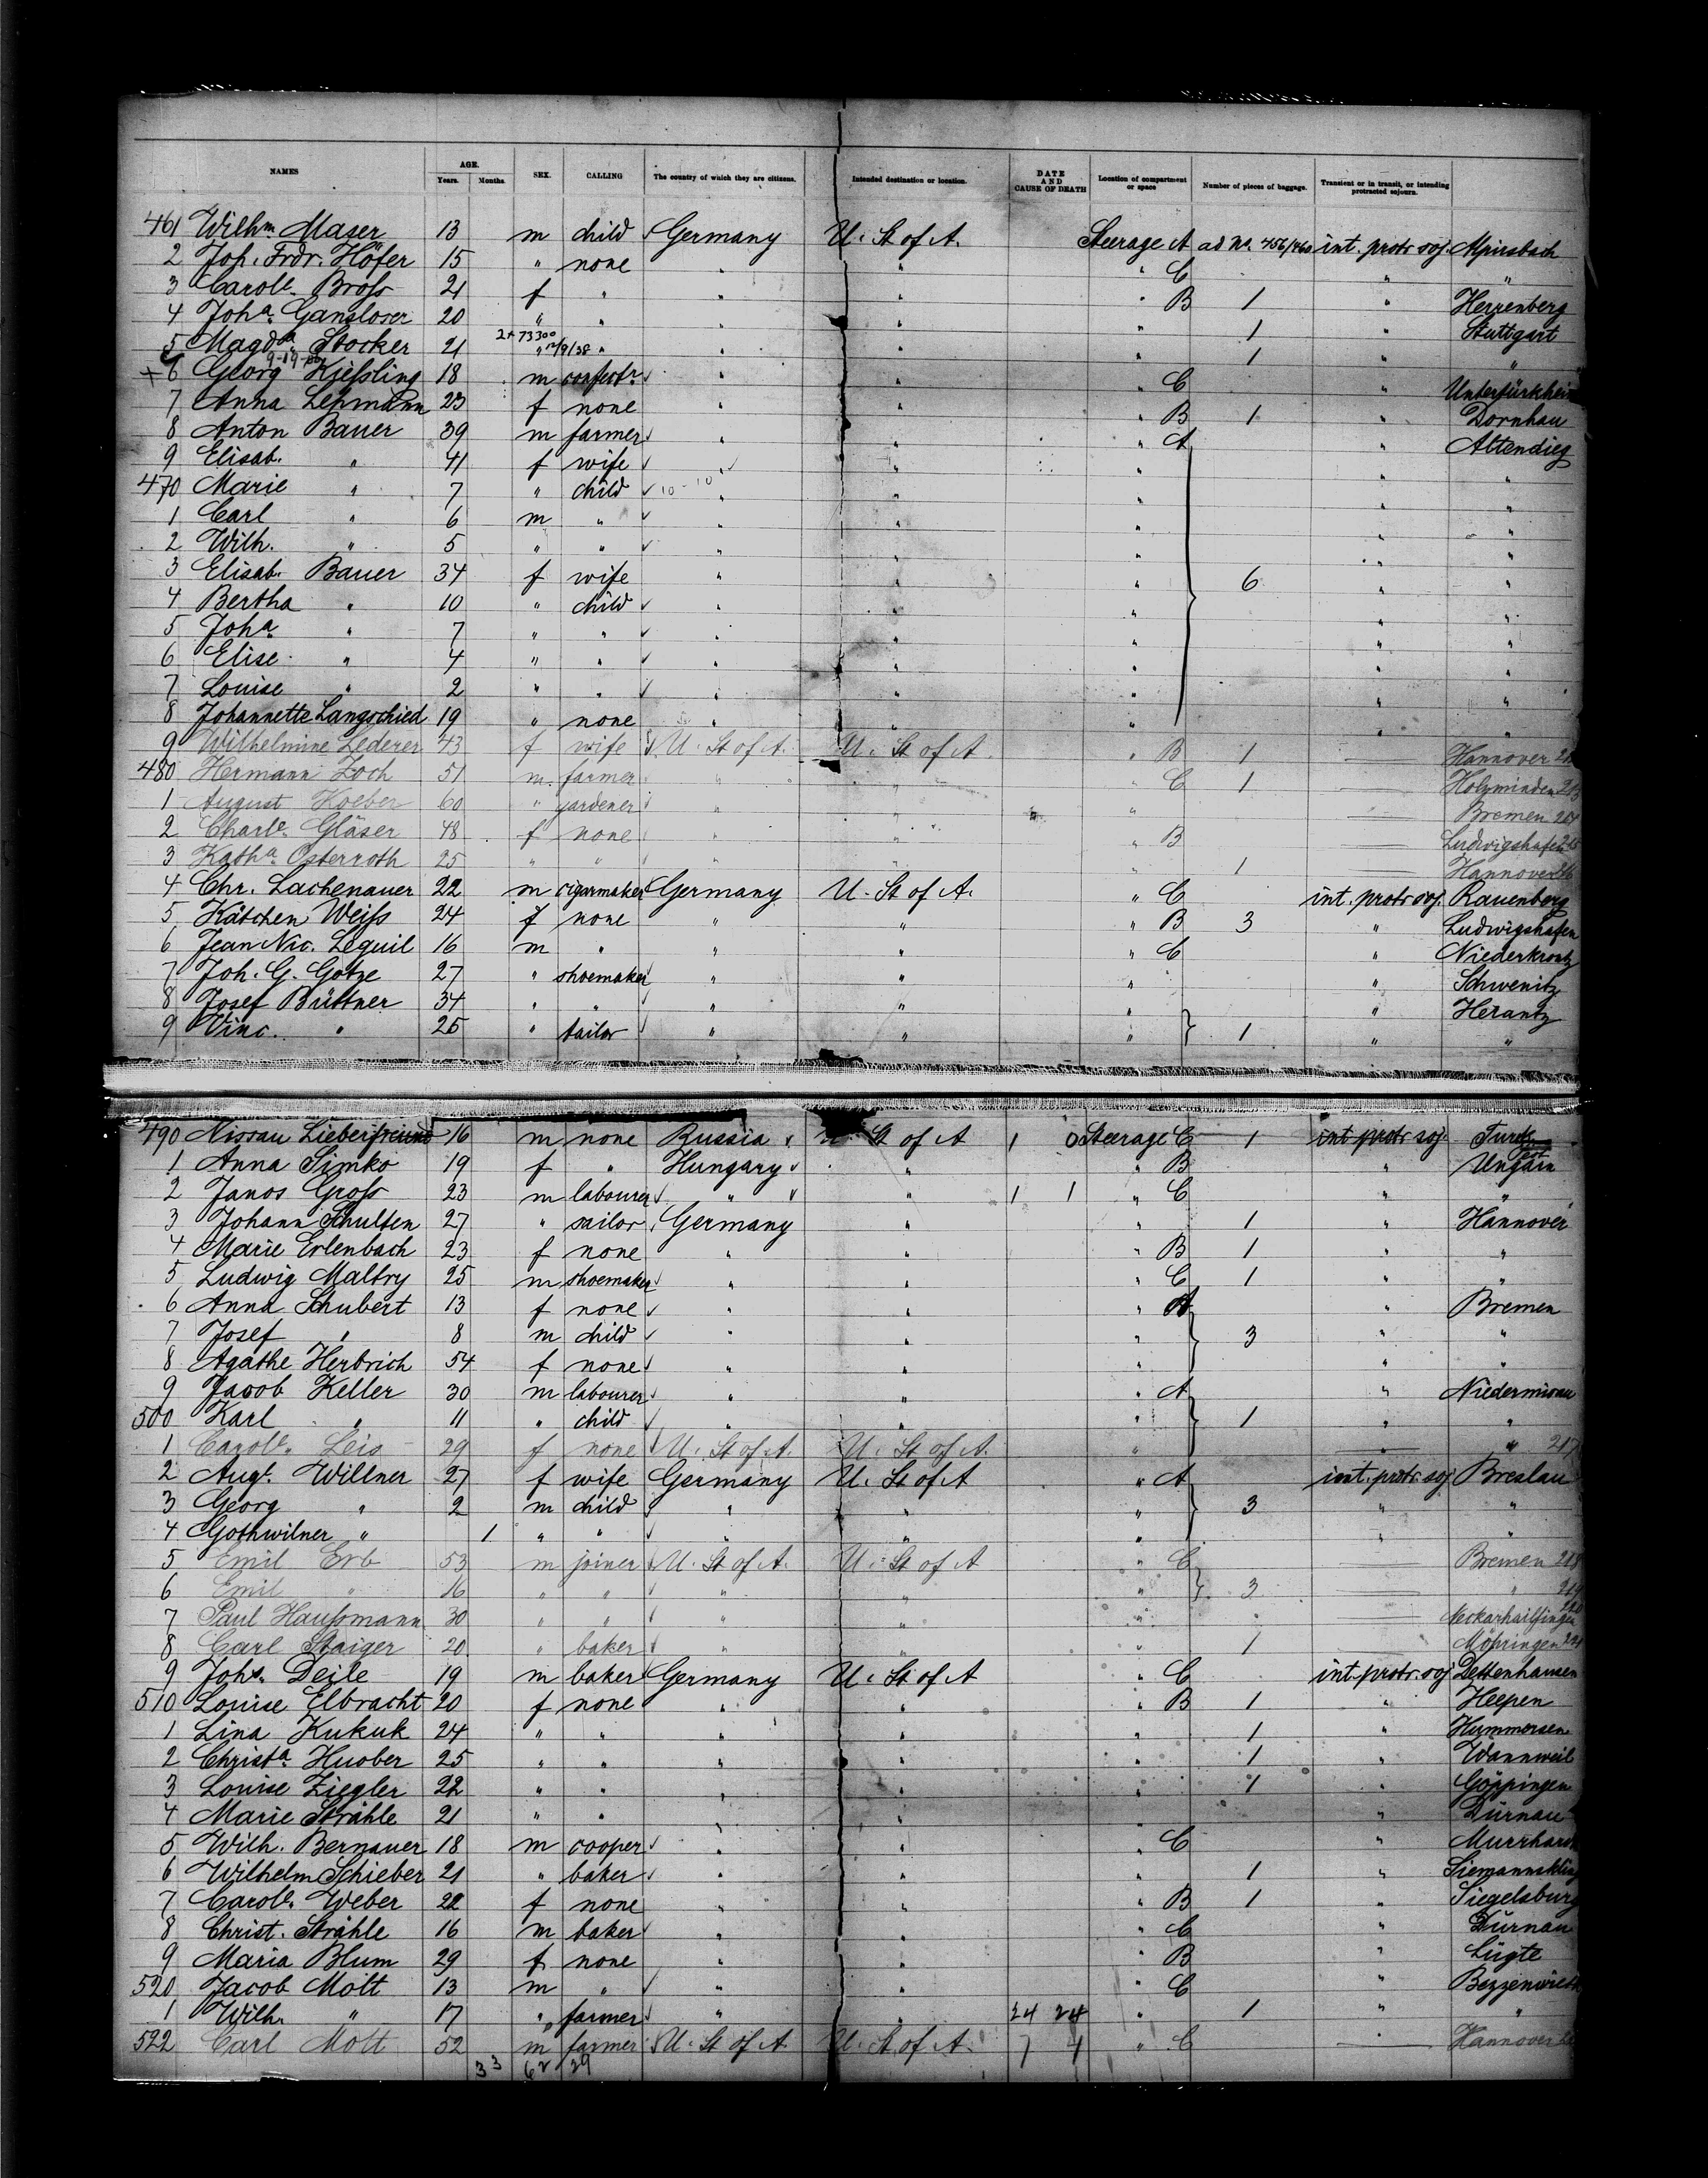 NAMES AGE. Years. Months. SEX. CALLING The country of which they are citizens. Intended destination or location. DATE AND CAUSE OF DEATH Location of compartment or space Number of pieces of baggage. Transient or in transit, or intending protracted sojourn.
461 Wilhm. Maser 13 m child Germany U. St of A. Steerage A ad No. 456/460 int. protr soj. Alpirsbach
2 Joh. Frdr. Höfer 15 " none " " " C " "
3 Carole. Bross 21 f " " " " B 1 " Herrenberg
4 Joha. Ganslover 20 " " " " " 1 " Stuttgart
5 Magda. Stocker 21 " " " " " 1 " "
6 Georg Kiessling 18 m confectr. " " " C " Untertürkheim
7 Anna Lehmann 23 f none " " " B 1 " Dornhau
8 Anton Bauer 39 m farmer " " " A " Altendieg
9 Elisab. " 41 f wife " " " " "
470 Marie " 7 " child " " " " "
1 Carl " 6 m " " " " " "
2 Wilh. " 5 " " " " " " "
3 Elisab. Bauer 34 f wife " " " 6 " "
4 Bertha " 10 " child " " " " "
5 Joha " 7 " " " " " " "
6 Elise " 4 " " " " " " "
7 Louise " 2 " " " " " " "
8 Johannette Langschied 19 " none " " " " "
9 Wilhelmine Lederer 43 f wife U. St of A. U. St of A. " B 1 Hannover
480 Hermann Zoch 51 m. farmer " " " C 1 Holzminden 213
1 August Koeber 60 " gardener " " " Bremen 214
2 Charle. Gläser 48 f none " " " B Ludwigshafen 215
3 Katha Osterroth 25 " " " " " 1 Hannover 216
4 Chr. Lachenauer 22 m cigarmaker Germany U. St of A. " C int. protr soj. Rauenberg
5 Kätchen Weiss 24 f none " " " B 3 " Ludwigshafen
6 Jean Nic. Lequil 16 m " " " " C " Niederkrontz
7 Joh. G. Gotze 27 " shoemaker " " " " Schwenitz
8 Josef Büttner 34 " " " " " " Herantz
9 Vinc. " 25 " tailor " " " 1 " "
490 Nissau Lieberfreund 16 m none Russia U. St of A 1 0 Steerage C 1 int protr soj.
1 Anna Simko 19 f " Hungary " " B " Ungarn
2 Janos Gross 23 m labourer " " 1 1 " C " "
3 Johann Schulten 27 " sailor Germany " " 1 " Hannover
4 Marie Erlenbach 23 f none " " " B 1 " "
5 Ludwig Maltry 25 m shoemaker " " " C 1 " "
6 Anna Schubert 13 f none " " " A " Bremen
7 Josef " 8 m child " " " 3 " "
8 Agathe Herbrich 54 f none " " " " "
9 Jacob Keller 30 m labourer " " " A " Niedermisau
500 Karl " 11 " child " " " 1 " "
1 Carole. Leis 29 f none U. St of A. U. St of A. " " 217
2 Augt. Willner 27 f wife Germany U. St of A " A int. protr. soj. Breslau
3 Georg " 2 m child " " " 3 " "
4 Gothwilner " 1 " " " " " " "
5 Emil Erb 53 m joiner U. St of A. U. St of A " C Bremen 218
6 Emil " 16 " " " " " 3 " 219
7 Paul Haussmann 30 " " " " " Neckarhailfingen 220
8 Carl Staiger 20 " baker " " " 1 Möhringen 221
9 Johs. Deile 19 m baker Germany U. St of A " C int. protr. soj Dettenhausen
510 Louise Elbracht 20 f none " " " B 1 " Heepen
1 Lina Kukuk 24 " " " " " 1 " Hummersen
2 Christa Huober 25 " " " " " 1 " Wannweil
3 Louise Ziegler 22 " " " " " 1 " Göppingen
4 Marie Strähle 21 " " " " " " Dürnau
5 Wilh. Bernauer 18 m cooper " " " C " Murrhardt
6 Wilhelm Schieber 21 " baker " " " 1 "
7 Carole. Weber 22 f none " " " B 1 " Siegelsburg
8 Christ. Strähle 16 m baker " " " C " Dürnau
9 Maria Blum 29 f none " " " B " Lügte
520 Jacob Molt 13 m " " " " C "
1 Wilh. " 17 " farmer " " 24 24 " 1 " "
522 Carl Molt 52 m farmer U. St of A U. St. of A. 7 4 " C Hannover
33 62 29